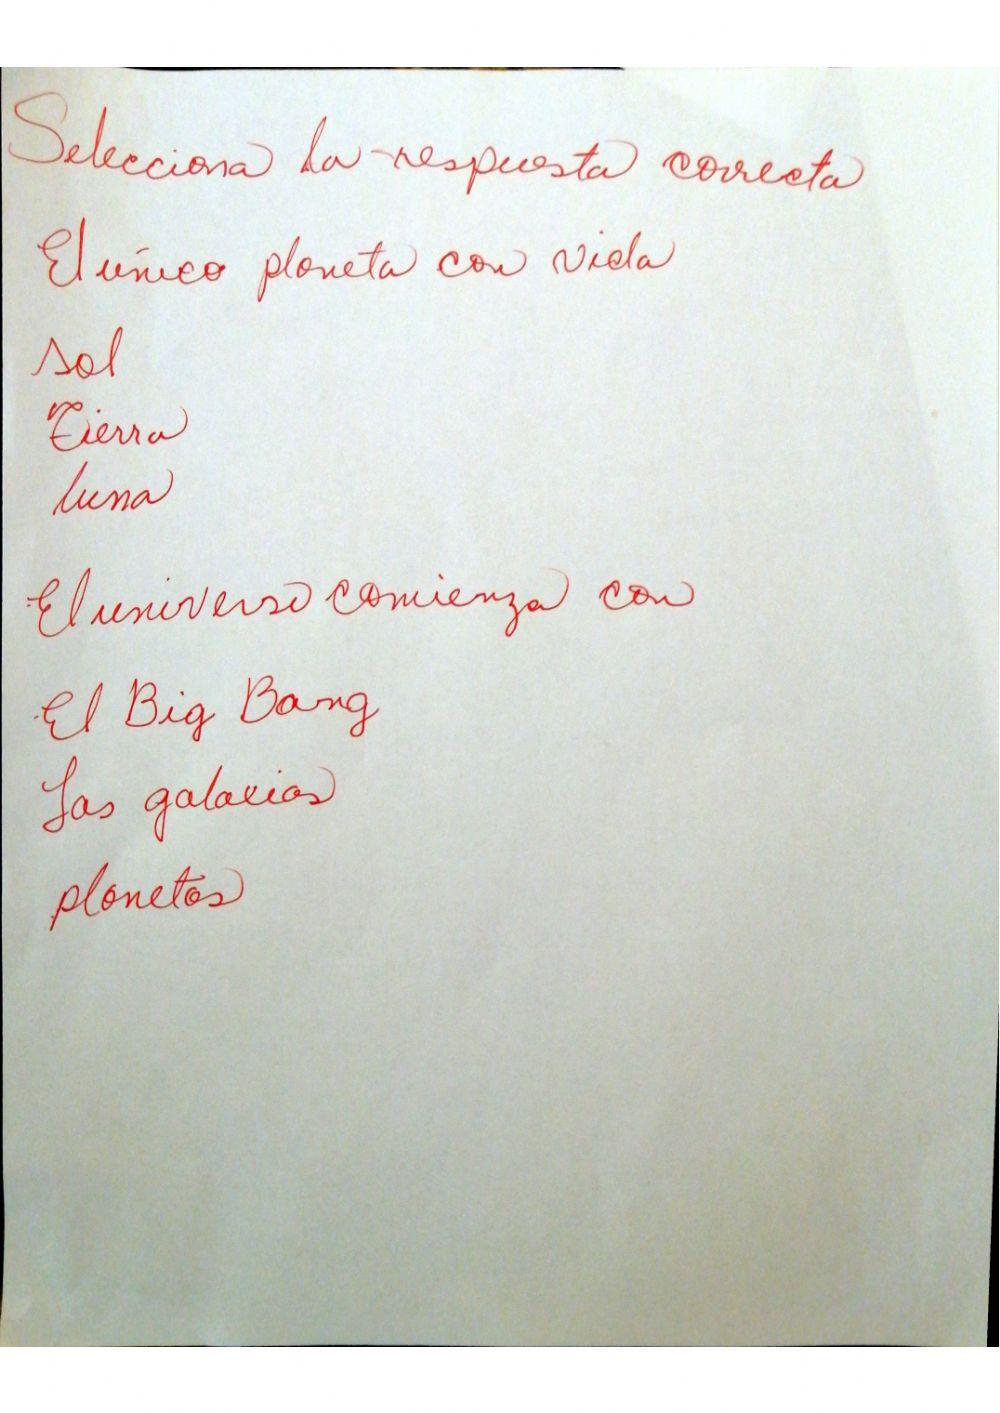 Selecciona la respuesta correcta
El único planeta con vida
sol
Tierra
luna
El universo comienza con
El Big Bang
Las galaxias
planetas